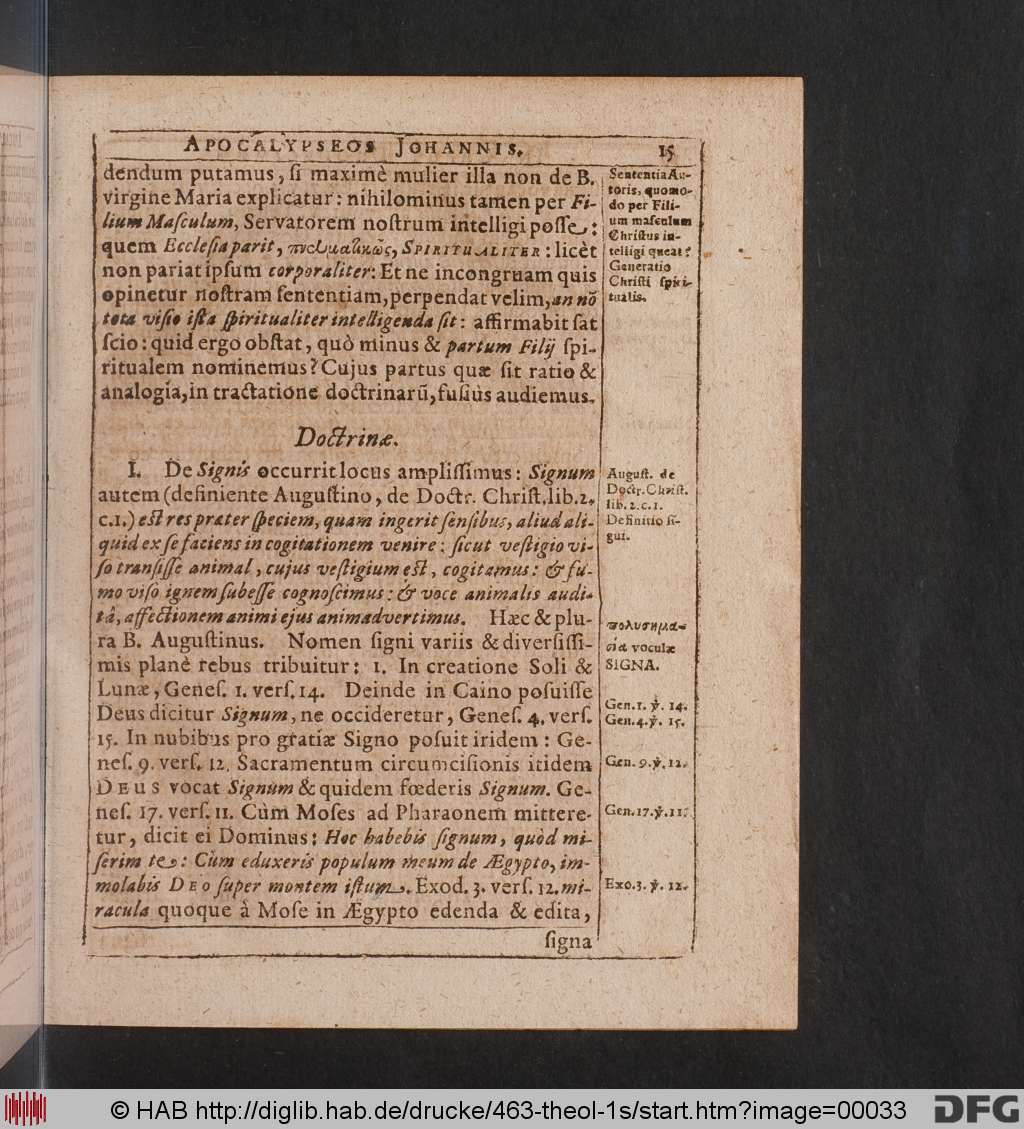 APOCALYPSEOS JOHANNIS. 15
dendum putamus, ſi maximè mulier illa non de B.
virgine Maria explicatur: nihilominus tamen per Fi-
lium Maſculum, Servatorem noſtrum intelligi poſſe:
quem Eccleſia parit, πνευματικῶς, SPIRITUALITER: licèt
non pariat ipſum corporaliter: Et ne incongruam quis
opinetur noſtram ſententiam, perpendat velim, an nõ
tota viſio iſta ſpiritualiter intelligenda ſit: affirmabit ſat
ſcio: quid ergo obſtat, quò minus & partum Filij ſpi-
ritualem nominemus? Cujus partus quæ ſit ratio &
analogia, in tractatione doctrinarũ, fuſiùs audiemus.
Sententia Au-
toris, quomo-
do per Fili-
um maſculum
Chriſtus in-
telligi queat?
Generatio
Chriſti ſpiri-
tualis.
Doctrinæ.
I. De Signis occurrit locus ampliſſimus: Signum
autem (definiente Auguſtino, de Doctr. Chriſt. lib. 2.
c. 1.) eſt res præter ſpeciem, quam ingerit ſenſibus, aliud ali-
quid ex ſe faciens in cogitationem venire: ſicut veſtigio vi-
ſo tranſiſſe animal, cujus veſtigium eſt, cogitamus: & fu-
mo viſo ignem ſubeſſe cognoſcimus: & voce animalis audi-
tâ, affectionem animi ejus animadvertimus. Hæc & plu-
ra B. Auguſtinus. Nomen ſigni variis & diverſiſſi-
mis planè rebus tribuitur: 1. In creatione Soli &
Lunæ, Geneſ. 1. verſ. 14. Deinde in Caino poſuiſſe
Deus dicitur Signum, ne occideretur, Geneſ. 4. verſ.
15. In nubibus pro gratiæ Signo poſuit iridem: Ge-
neſ. 9. verſ. 12. Sacramentum circumciſionis itidem
DEUS vocat Signum & quidem fœderis Signum. Ge-
neſ. 17. verſ. 11. Cùm Moſes ad Pharaonem mittere-
tur, dicit ei Dominus: Hoc habebis ſignum, quòd mi-
ſerim te: Cùm eduxeris populum meum de Ægypto, im-
molabis DEO ſuper montem iſtum. Exod. 3. verſ. 12. mi-
racula quoque à Moſe in Ægypto edenda & edita,
ſigna
Auguſt. de
Doctr. Chriſt.
lib. 2. c. 1.
Definitio ſi-
gni.
πολυσημα-
σία voculæ
SIGNA.
Gen. 1. ỳ. 14.
Gen. 4. ỳ. 15.
Gen. 9. ỳ. 12.
Gen. 17. ỳ. 11.
Exo. 3. ỳ. 12.
© HAB http://diglib.hab.de/drucke/463-theol-1s/start.htm?image=00033
DFG